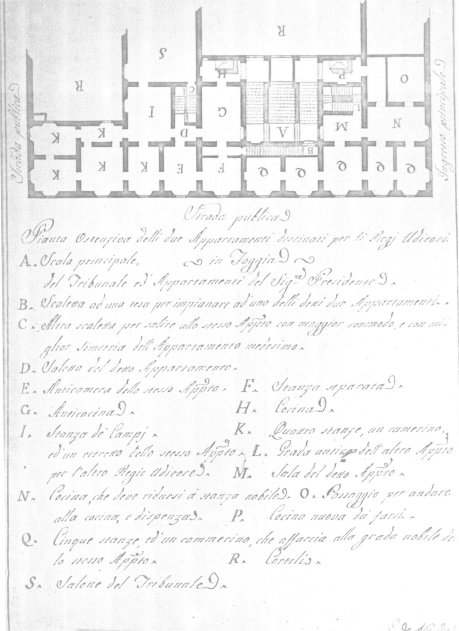 Strada publica
Ingresso principale
R
S
R
R
H
P
O
I
G
L
N
D
A
M
K
K
B
K
K
E
F
Q
Q
Q
Q
Strada publica
Pianta Ostensiva delli due Appartamenti destinati per li Regj Uditori
A. Scala principale, in Foggia
del Tribunale ed Appartamenti del Sig.r Presidente.
B. Scaletta ad una tesa per impianare ad uno delli detti due Appartamenti.
C. Altra scaletta per salire allo stesso App.to con maggior commodo, e con mi-
glior simetria dell'Appartamento medesimo.
D. Saletta del detto Appartamento.
E. Anticamera dello stesso App.to. F. Stanza separata.
G. Anticocina. H. Cocina.
I. Stanza de' Campj K. Quattro stanze, un camerino,
ed un dello stesso App.to. L. Grada antica dell'altro App.to
per l'altro Regio Uditore. M. Sala del detto App.to.
N. Cocina, che deve ridursi a stanza nobile. O. Passaggio per andare
alla cocina, e dispenza. P. Cocina nuova da farsi.
Q. Cinque stanze, ed un cammerino, che affaccia alla grada nobile del-
lo stesso App.to. R. Cortili.
S. Salone del Tribunale.